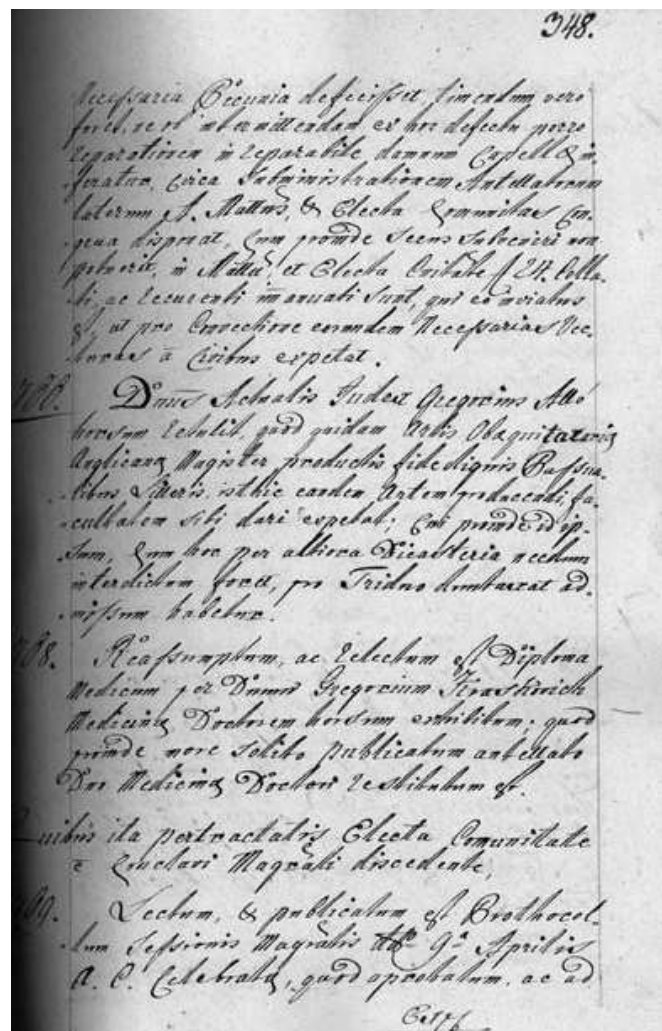 348.
Necessaria Pecunia defecisset, timendum vero
foret, ne ob intermittendam ex hoc defectu porro
reparationem irreparabile damnum Capellæ in-
feratur, circa Subministrationem Antellatorum
laterum J. Mattus, & Electa Communitas Con-
grua disponat, Cum proinde secus subveniri non
potuerit, in Mattu, et Electa Coitate f 24. Colla-
ti, ac Recurenti manuati sunt, qui eo inviatus
est, ut pro Convectione eorundem Necessarias Vec-
turas a Civibus expetat.
Dnus Actualis Judex Gregorius
horsum retulit, quod quidam Artis Obequitatoriæ
Anglicanæ Magister productis fide dignis Passua-
libus Litteris, isthic eandem Artem producendi fa-
cultatem sibi dari expetat; Cui proinde id ip-
sum, Cum hoc per altiora Dicasteria necdum
interdictum foret, pro Triduo dumtaxat ad-
missum habetur.
768. Reassumptum, ac relectum est Diploma
Medicum per Dnum Gregorium
Medicinæ Doctorem horsum exhibitum; quod
proinde more solito publicatum antellato
Dno Medicinæ Doctori restitutum est.
Quibus ita pertractatis Electa Comunitate
e Conclavi Magrali discedente,
769. Lectum, & publicatum est Prothocol-
lum Sessionis Magralis 9a Aprilis
A. C. Celebratæ, quod aprobatum, ac ad